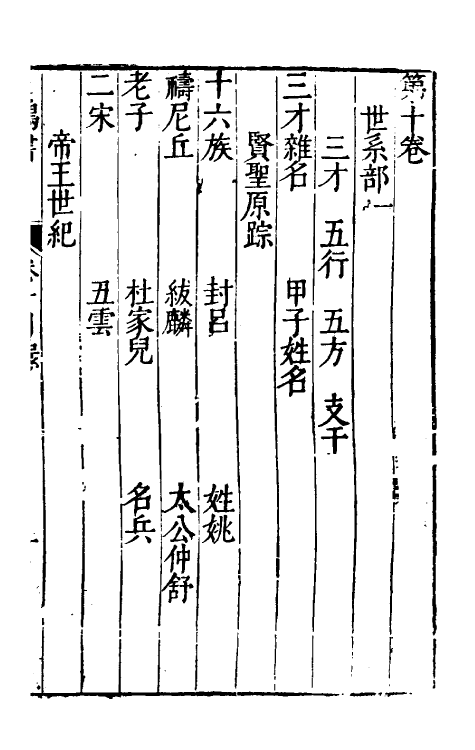 第十卷
世系部一
三才 五行 五方 支干
三才雜名 甲子姓名
賢聖原踪
十六族 封呂 姓姚
禱尼丘 紱麟 太公仲舒
老子 杜家兒 名兵
二宋 丑雲
帝王世紀
書